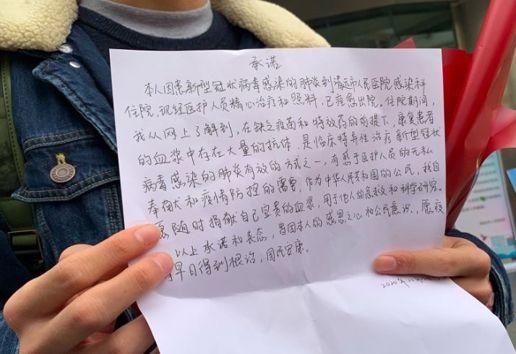 承诺
本人因患新型冠状病毒感染的肺炎到清远市人民医院感染科
住院，现经医护人员精心治疗和照料，已痊愈出院，住院期间，
我从网上了解到，在缺乏疫苗和特效药的前提下，康复患者
的血浆中存在大量的抗体，是临床特异性治疗新型冠状
病毒感染的肺炎有效的方式之一，有感于医护人员的无私
奉献和疫情防控的需要，作为中华人民共和国的公民，我自
愿随时捐献自己宝贵的血浆，用于他人的急救和科学研究。
以上承诺和表态，是因本人的感恩之心和公民意识，愿疫
早日得到根治，国民安康。